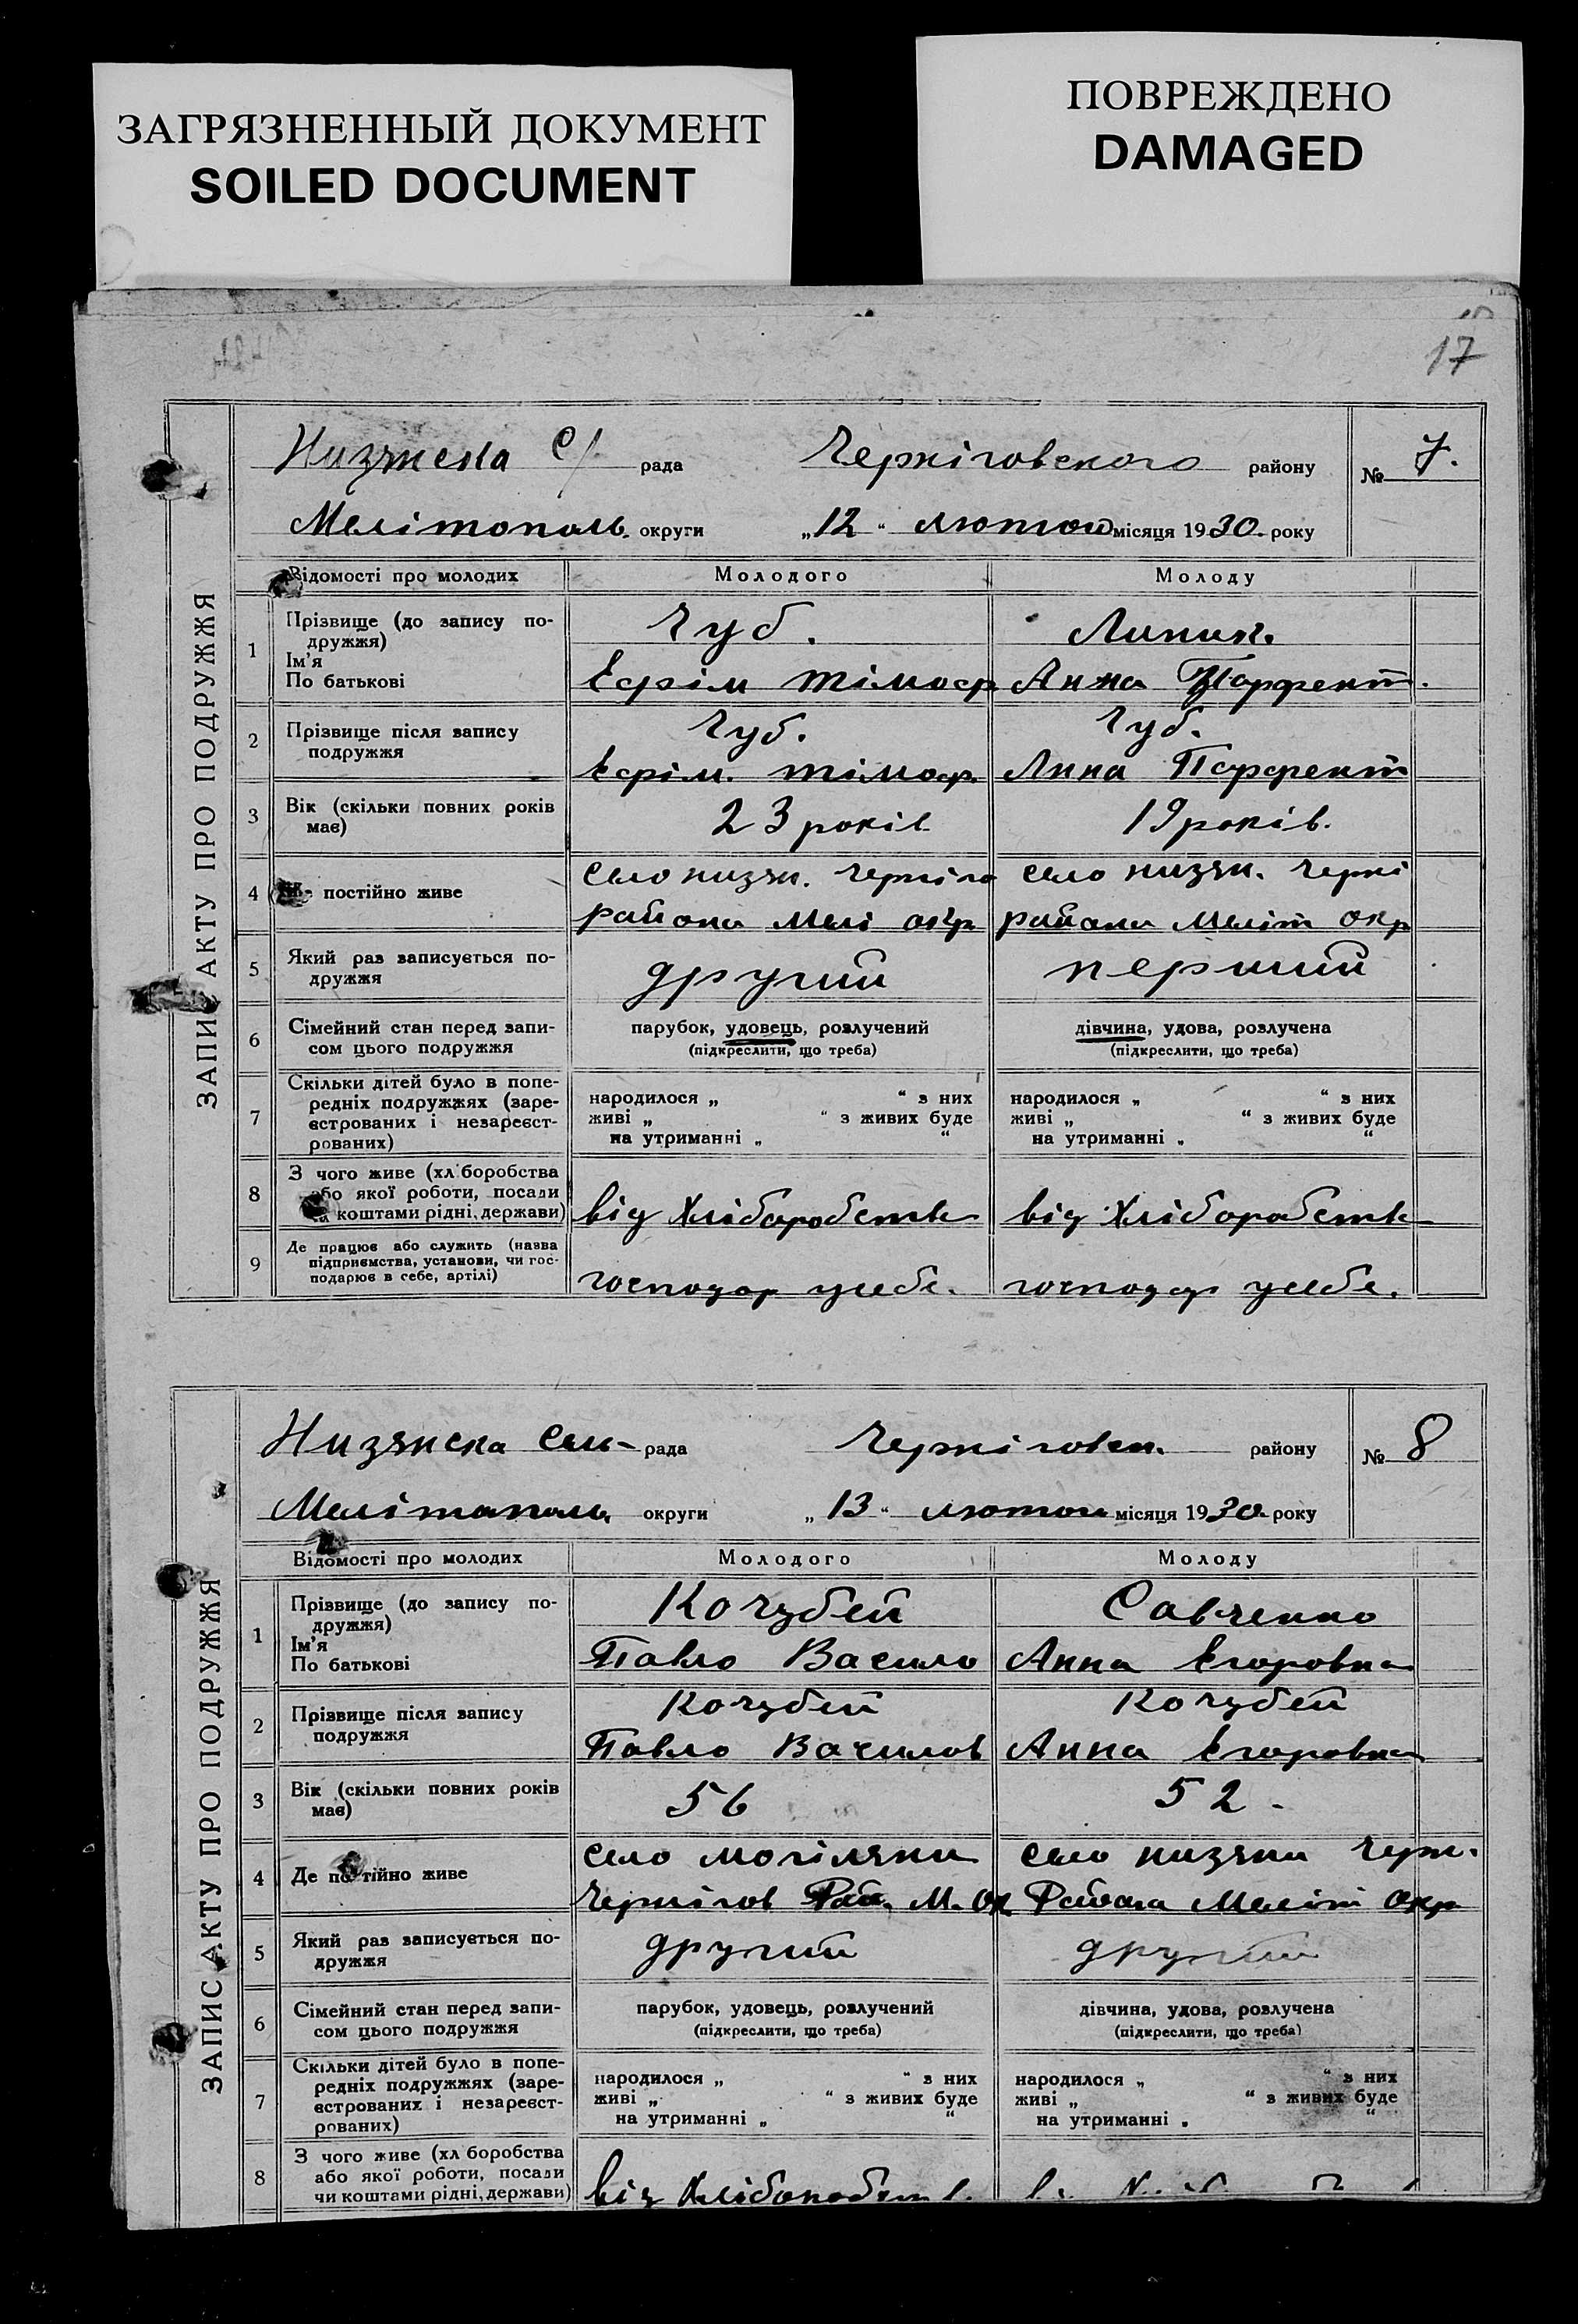 ЗАГРЯЗНЕННЫЙ ДОКУМЕНТ
SOILED DOCUMENT
ПОВРЕЖДЕНО
DAMAGED
17
ЗАПИС АКТУ ПРО ПОДРУЖЖЯ
Низянска С/ рада Чернiговского району № 7.
Мелiтополь. округи „12“ лютого місяця 1930. року
Відомості про молодих Молодого Молоду
1 Прізвище (до запису по-
дружжя)
Ім'я
По батькові
Чуб. Линик.
Ефiм Тiмоф Анна Парфент.
2 Прізвище після запису
подружжя
Чуб. Чуб.
Ефiм. Тiмоф. Анна Парфент
3 Вік (скільки повних років
має)
23 рокiв 19 рокiв.
4 постійно живе
село низян. Чернiго село низян. Чернi
района Мелi окр района Мелiт окр
5 Який раз записується по-
дружжя
другий перший
6 Сімейний стан перед запи-
сом цього подружжя
парубок, удовець, розлучений дівчина, удова, розлучена
(підкреслити, що треба) (підкреслити, що треба)
7 Скільки дітей було в попе-
редніх подружжях (заре-
єстрованих і незареєст-
рованих)
народилося „ “ з них народилося „ “ з них
живі „ “ з живих буде живі „ “ з живих буде
на утриманні „ “ на утриманні „ “
8 З чого живе (хлiборобства
або якої роботи, посади
чи коштами рідні, держави)
вiд Хлiборобств вiд Хлiборобств
9 Де працює або служить (назва
підприємства, установи, чи гос-
подарює в себе, артілі)
господар усебе. господар усебе.
ЗАПИС АКТУ ПРО ПОДРУЖЖЯ
Низянска Сель- рада Чернiговск. району № 8
Мелiтополь округи „13“ лютого місяця 1930. року
Відомості про молодих Молодого Молоду
1 Прізвище (до запису по-
дружжя)
Ім'я
По батькові
Кочубей Савченко
Павло Васило Анна Егоровна
2 Прізвище після запису
подружжя
Кочубей Кочубей
Павло Васильов Анна Егоровна
3 Вік (скільки повних років
має)
56 52.
4 Де постійно живе
село могiляни село низяни Черн.
Чернiгов Рай. М. Ок Района Мелiт окр
5 Який раз записується по-
дружжя
другий другий
6 Сімейний стан перед запи-
сом цього подружжя
парубок, удовець, розлучений дівчина, удова, розлучена
(підкреслити, що треба) (підкреслити, що треба)
7 Скільки дітей було в попе-
редніх подружжях (заре-
єстрованих і незареєст-
рованих)
народилося „ “ з них народилося „ “ з них
живі „ “ з живих буде живі „ “ з живих буде
на утриманні „ “ на утриманні „ “
8 З чого живе (хл боробства
або якої роботи, посади
чи коштами рідні, держави)
вiд Хлiборобств.